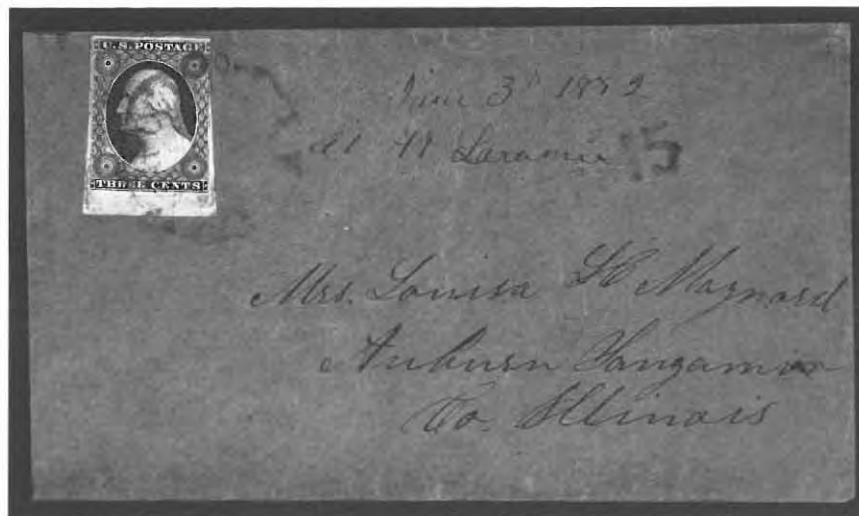 U.S. POSTAGE
THREE CENTS
June 3d 1852
at Ft Laramie 5
Mrs. Louisa H Maynard
Auburn Sangamon
Co. Illinois